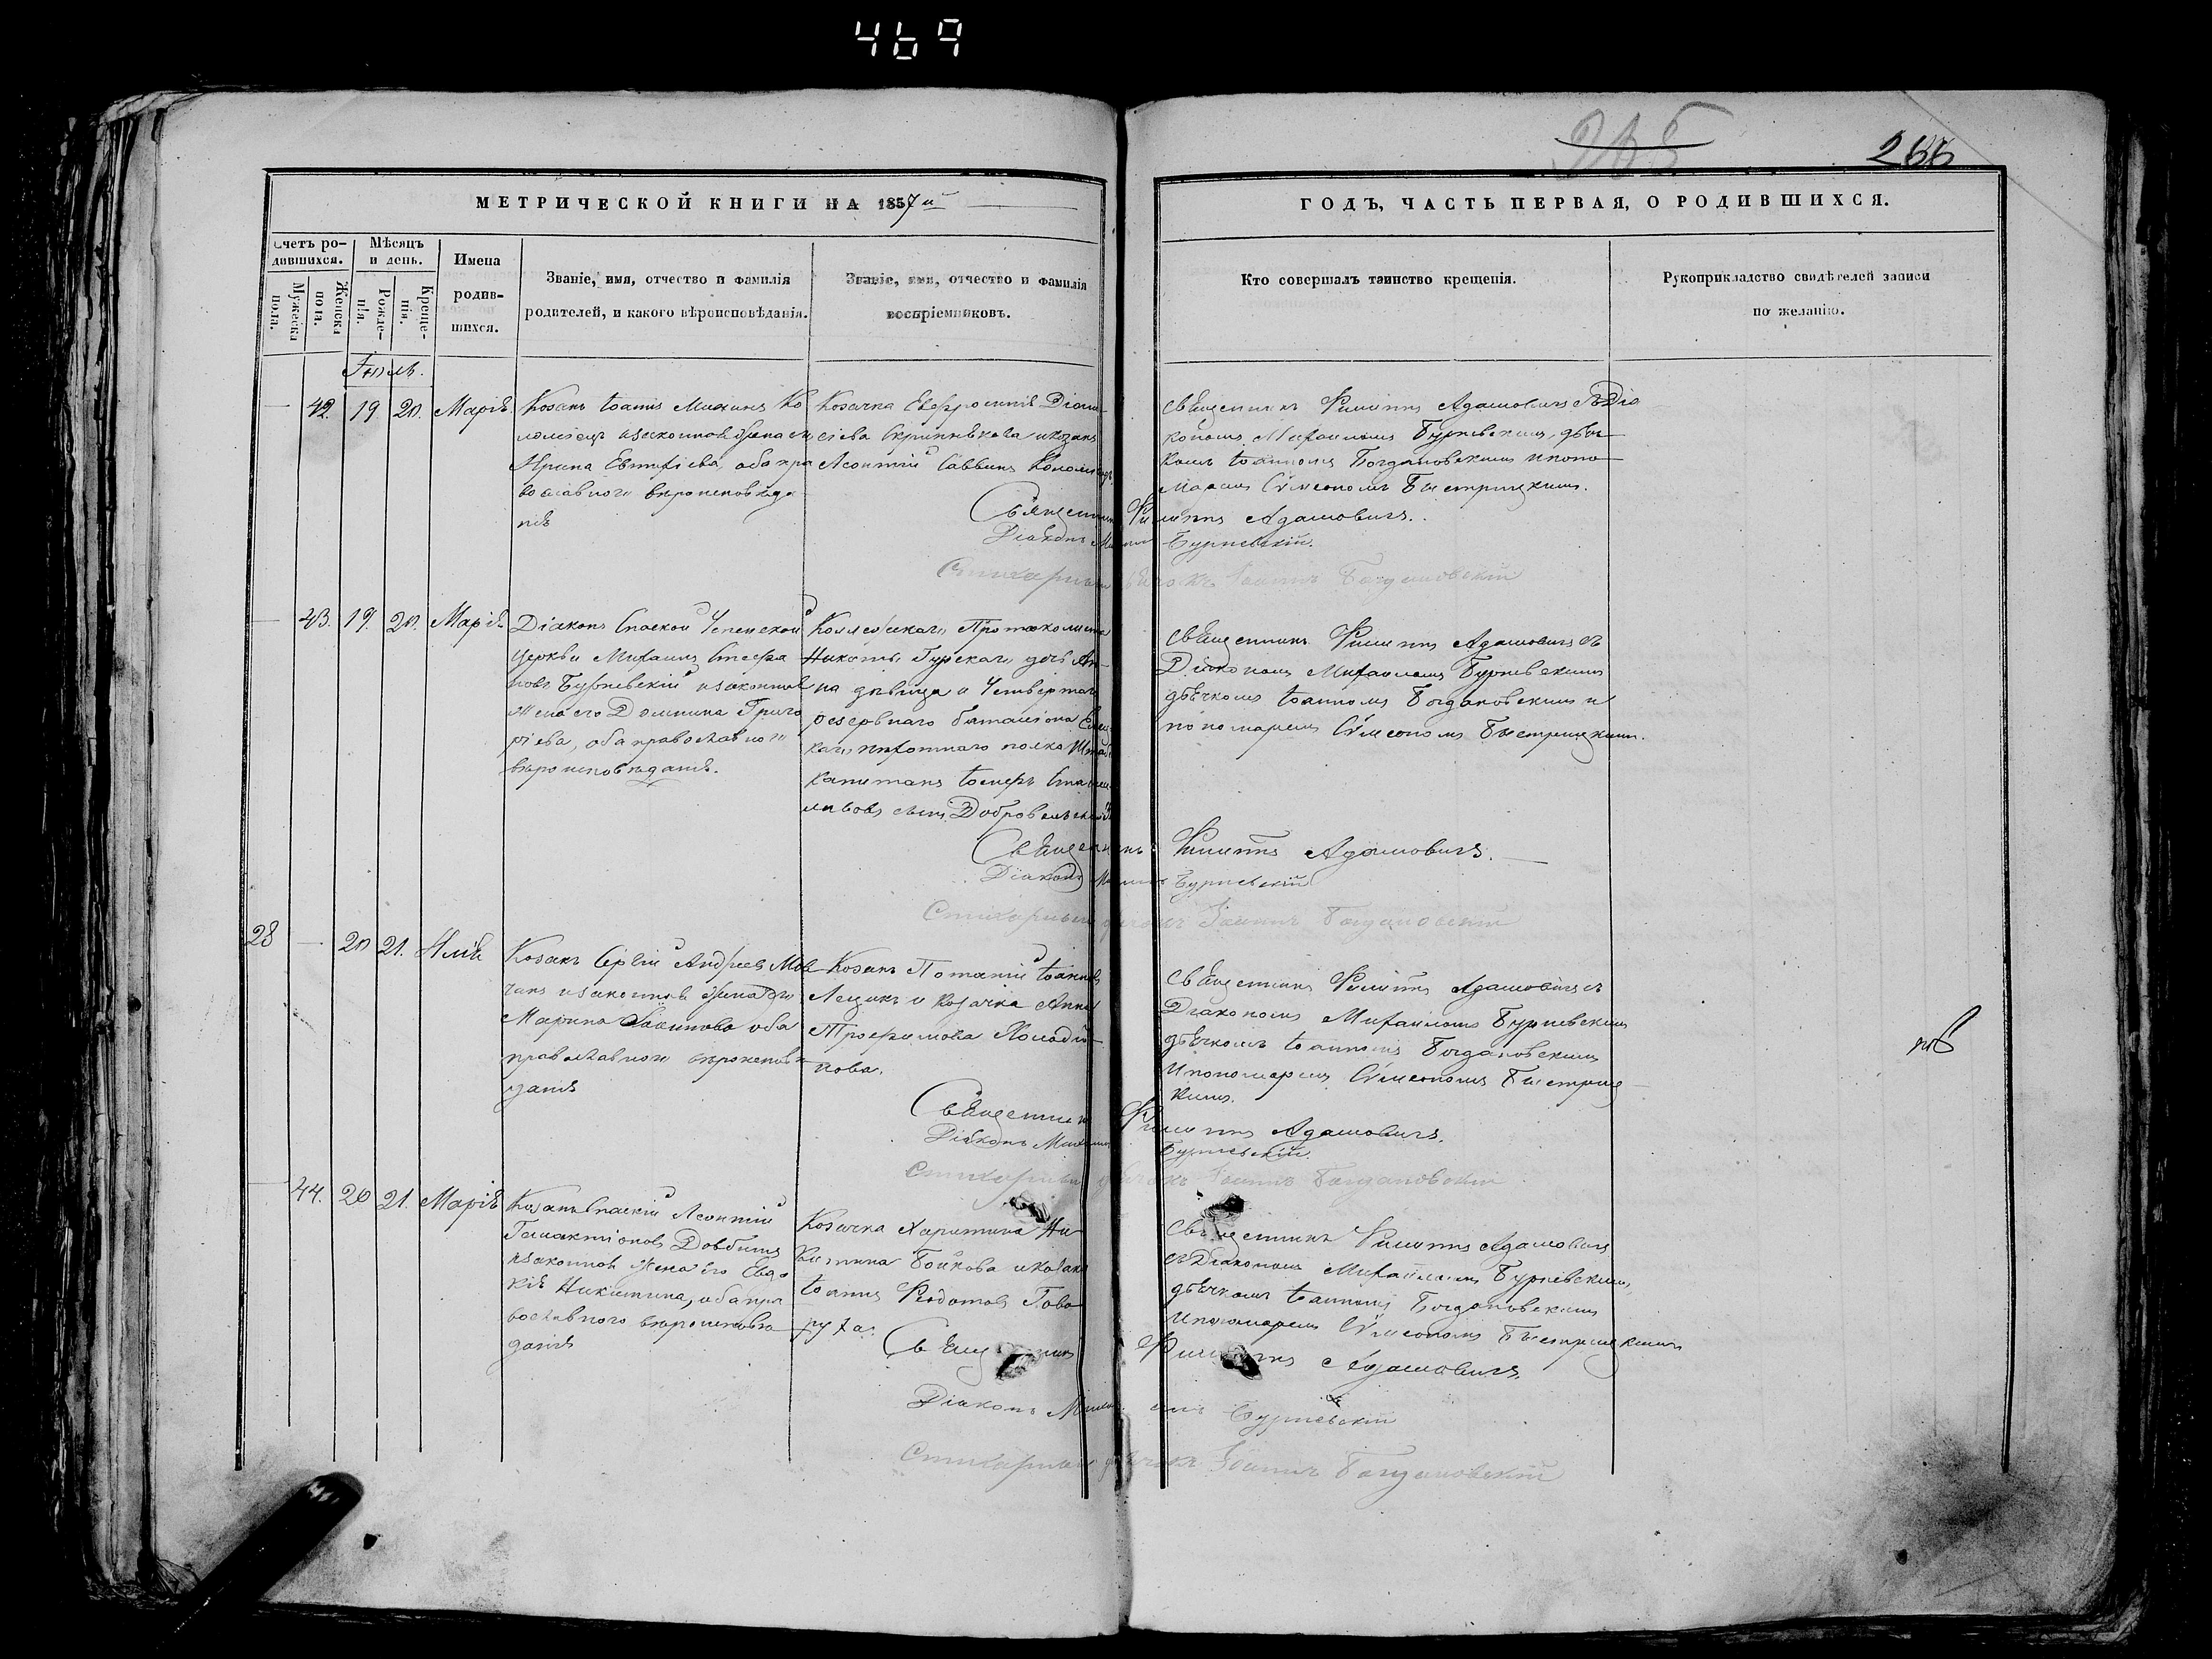 469
265
266
МЕТРИЧЕСКОЙ КНИГИ НА 1857й
ГОДЪ, ЧАСТЬ ПЕРВАЯ, О РОДИВШИХСЯ.
Счетъ родившихся.
Мужеска пола.
Женска пола.
Мѣсяцъ и день.
Рожденія.
Крещенія.
Имена родившихся.
Званіе, имя, отчество и фамилія
родителей, и какого вѣроисповѣданія.
Званіе, имя, отчество и фамилія
воспріемниковъ.
Кто совершалъ таинство крещенія.
Рукоприкладство свидѣтелей записи
по желанію.
Іюль.
42. 19 20. Марія
Козакъ Іоаннъ Ко
ломіецъ и законная жена его
Ирина Евтихіева, оба пра
вославнаго вѣроисповѣда
нія
Козачка Евфросинія Діони-
сіева и козакъ
Леонтій Саввинъ Коломіецъ
Священникъ Филиппъ Адамовичъ съ Діа
кономъ Михаиломъ Бурневскимъ, дьяч
комъ Іоанномъ Богдановскимъ и поно
маремъ Сѵмеономъ Быстрицкимъ.
Священникъ Филиппъ Адамовичъ.
Діаконъ Михаилъ Бурневскій.
Стихарный дьячокъ Іоаннъ Богдановскій
43. 19. 20. Марія
Діаконъ Спаской Успенской
Церкви Михаилъ Стефа
новъ Бурневскій и законная
жена его Домникія Григо
ріева, оба православнаго
вѣроисповѣданія.
Коллежскаго Протоколиста
Никиты Гурскаго дочь Ан-
на дѣвица и Четвертаго
резервнаго баталіона Елец
каго пѣхотнаго полка Штабсъ
капитанъ Іосифъ
сынъ Добровольскій
Священникъ Филиппъ Адамовичъ съ
Діакономъ Михаиломъ Бурневскимъ
дьячкомъ Іоанномъ Богдановскимъ и
пономаремъ Сѵмеономъ Быстрицкимъ.
Священникъ Филиппъ Адамовичъ.
Діаконъ Михаилъ Бурневскій
Стихарный дьячокъ Іоаннъ Богдановскій
28 20 21. Илія
Козакъ Сергій Андреевъ Мов
чанъ и законная жена его
Марина оба
православнаго вѣроисповѣ
данія
Козакъ Потапій Іоанновъ
Лещикъ и козачка Анна
Трофимова Холодй
нова.
Священникъ Филиппъ Адамовичъ съ
Діакономъ Михаиломъ Бурневскимъ
дьячкомъ Іоанномъ Богдановскимъ
и пономаремъ Сѵмеономъ Быстриц
кимъ.
Священникъ Филиппъ Адамовичъ.
Діаконъ Михаилъ Бурневскій.
Стихарный дьячокъ Іоаннъ Богдановскій
44. 20 21. Марія
Козакъ Спаскій Леонтій
Галактіоновъ Довбышъ
и законная жена его Евдо
кія Никитина, оба пра
вославнаго вѣроисповѣ
данія
Козачка Харитина Ни-
китина Бойкова и козакъ
Іоаннъ Ѳедотовъ Гово
руха.
Священникъ Филиппъ Адамовичъ
съ Діакономъ Михаиломъ Бурневскимъ,
дьячкомъ Іоанномъ Богдановскимъ
и пономаремъ Сѵмеономъ Быстрицкимъ
Священникъ Филиппъ Адамовичъ.
Діаконъ Михаилъ Бурневскій
Стихарный дьячокъ Іоаннъ Богдановскій